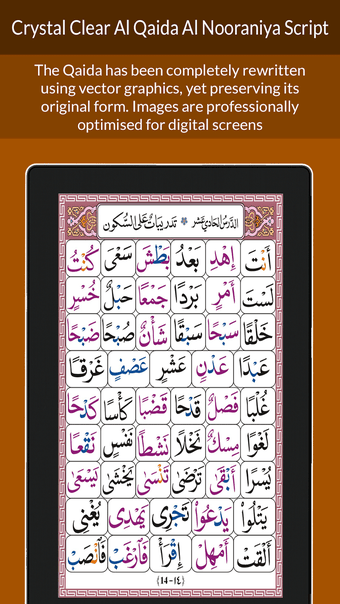 Crystal Clear Al Qaida Al Nooraniya Script
The Qaida has been completely rewritten
using vector graphics, yet preserving its
original form. Images are professionally
optimised for digital screens
الدَّرْسُ الحَادِي عَشَر * تَدْرِيبَاتٌ عَلَى السُّكُونِ
أَنْتَ إِهْدِ بَعْدُ بَطْشَ سَعْىَ كُنْتُ
لَسْتَ أَمْرٍ بَرْدًا جَمْعًا حَبْلٌ خُسْرٍ
خَلْقًا سَبْحًا سَبْقًا شَأْنٌ صُبْحًا ضَبْحًا
عَبْدًا عَدْنٍ عَشْرٍ عَصْفٍ غَرْقًا
غُلْبًا فَصْلٌ قَدْحًا قَضْبًا كَأْسًا كَدْحًا
لَغْوًا مِسْكٌ نَخْلًا نَشْطًا نَفْسٍ نَقْعًا
يُسْرًا أَبْقَىٰ تَرْضَىٰ تَنْسَىٰ يَخْشَىٰ يَسْعَىٰ
يَتْلُوْا يَدْعُوْا تَجْرِى يَهْدِى يُغْنِى
أَلْقَتْ أَمْهِلْ اِقْرَأْ فَارْغَبْ فَانْصَبْ
(14-١٤)